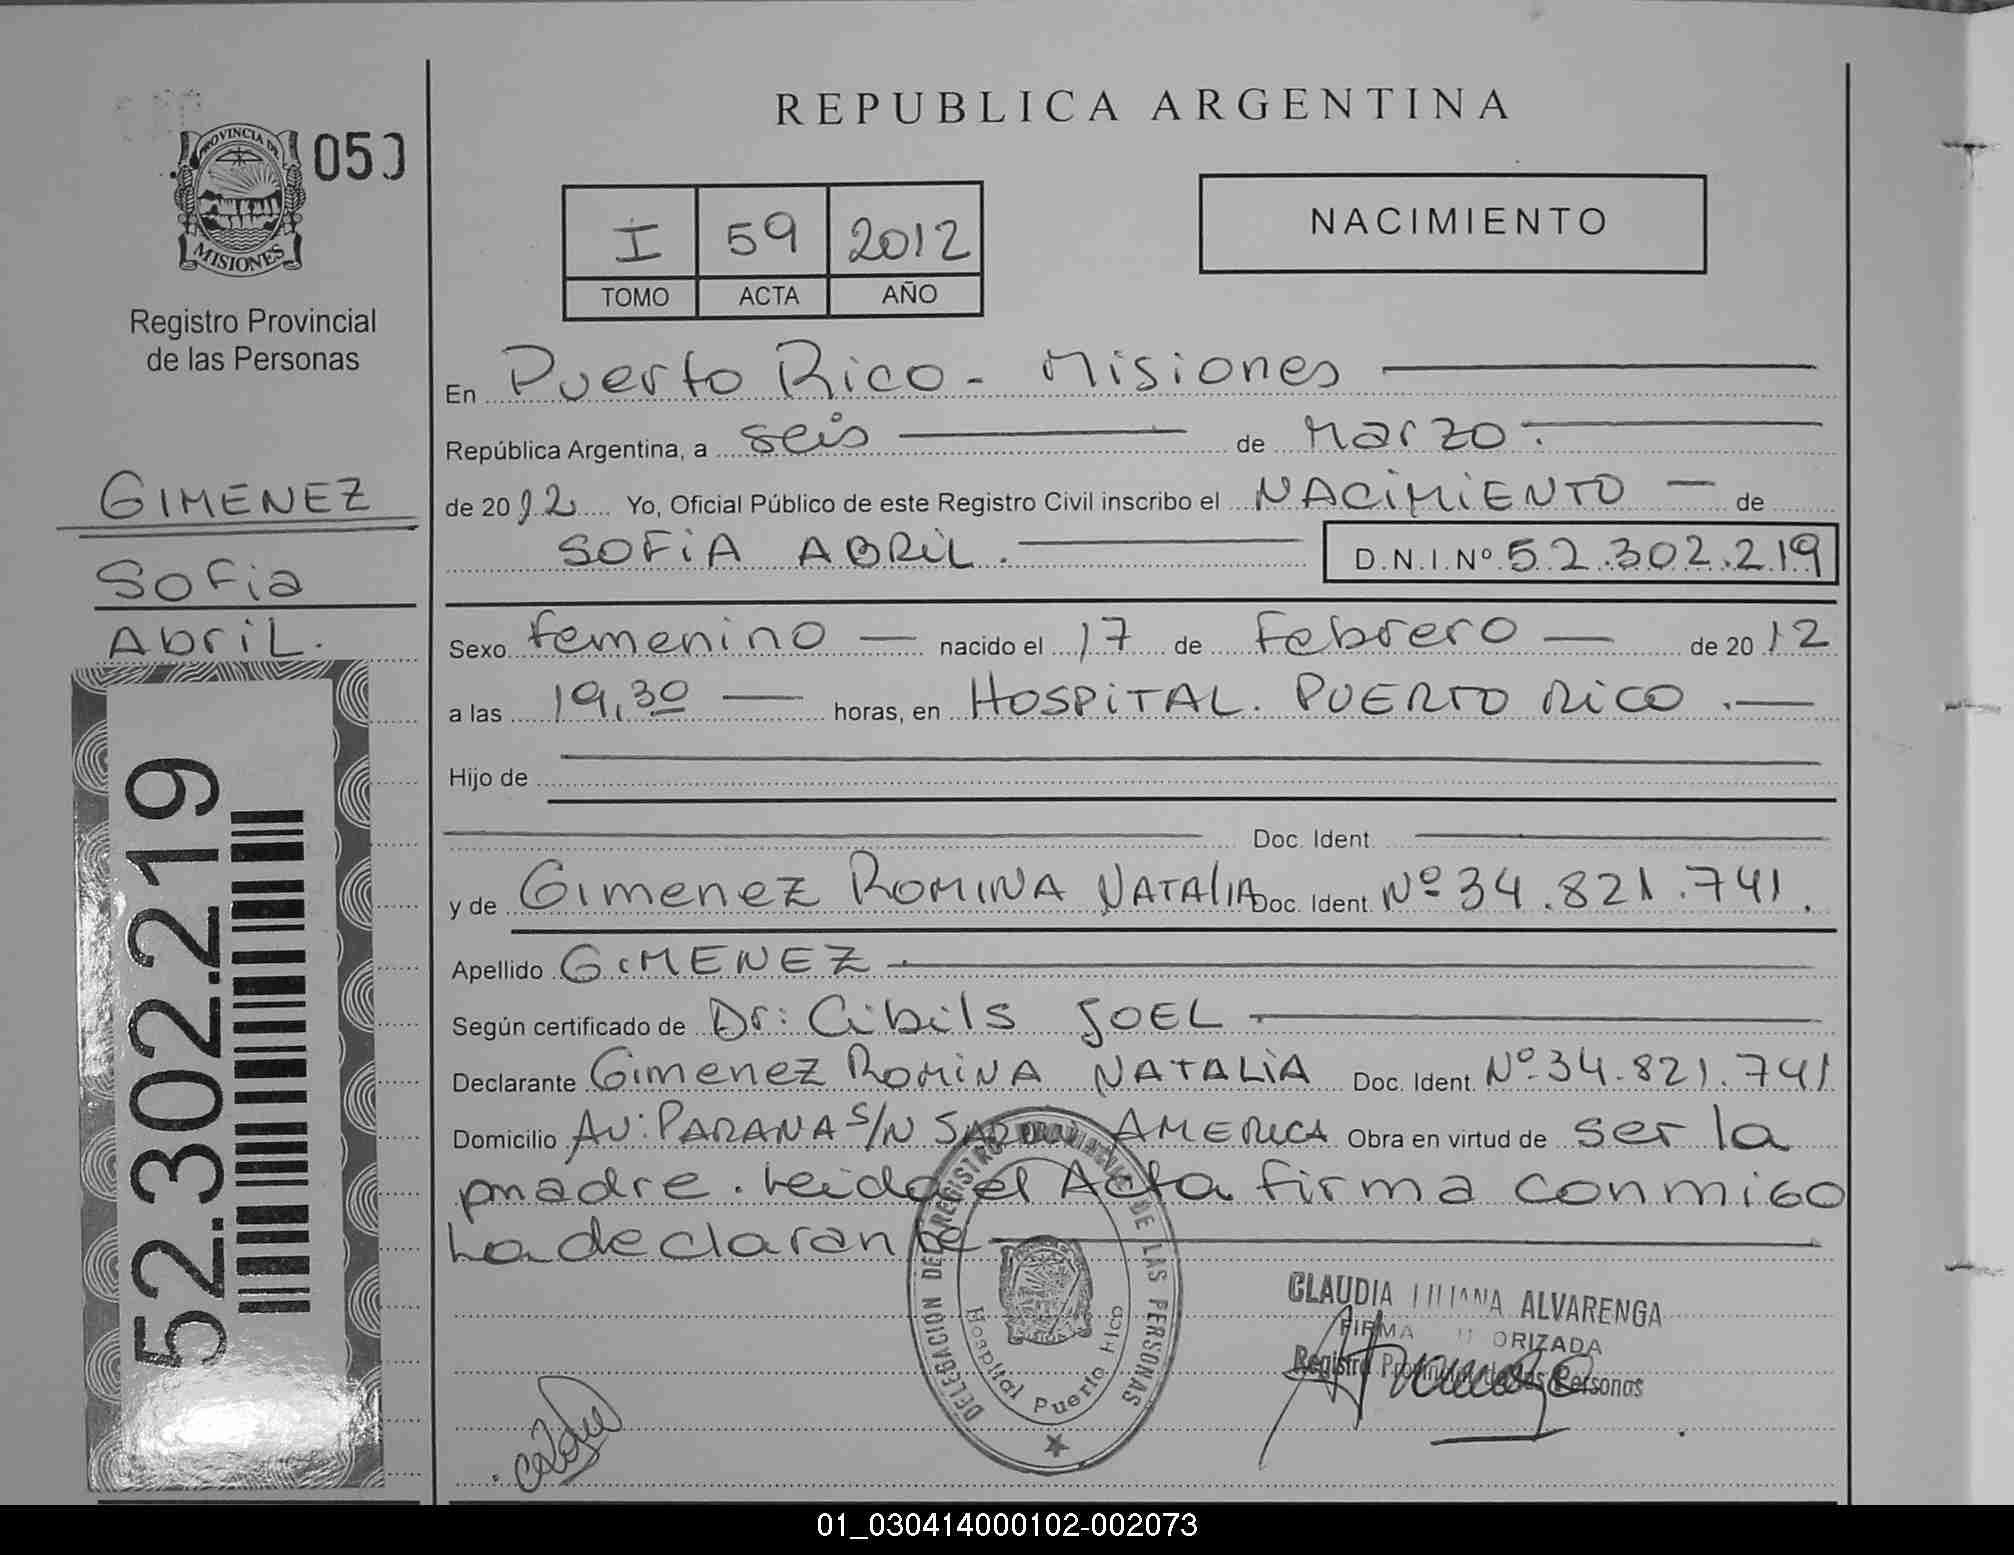 REPUBLICA ARGENTINA
PROVINCIA DE
MISIONES
050
Registro Provincial
de las Personas
I 59 2012
TOMO ACTA AÑO
NACIMIENTO
GIMENEZ
Sofia
Abril.
52.302.219
En Puerto Rico - Misiones
República Argentina, a seis de Marzo.
de 2012 Yo, Oficial Público de este Registro Civil inscribo el NACIMIENTO de
SOFIA ABRIL. D.N.I.Nº 52.302.219
Sexo femenino nacido el 17 de Febrero de 2012
a las 19,30 horas, en HOSPITAL. PUERTO RICO.
Hijo de
Doc. Ident.
y de Gimenez ROMINA NATALIA Doc. Ident. Nº 34.821.741.
Apellido GIMENEZ.
Según certificado de Dr: Cibils JOEL
Declarante Gimenez ROMINA NATALIA Doc. Ident. Nº 34.821.741
Domicilio AV: PARANA S/N AMERICA Obra en virtud de ser la
madre. Leida el Acta firma conmigo
La declarante
DELEGACION DEL REGISTRO DE LAS PERSONAS
Hospital Puerto Rico
CLAUDIA LILIANA ALVARENGA
FIRMA AUTORIZADA
Registro Provincial de las Personas
01_030414000102-002073